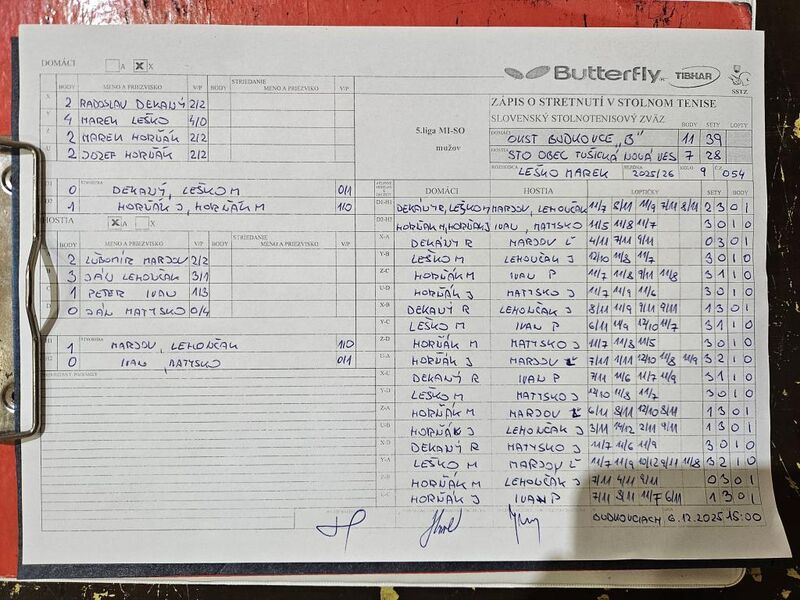 DOMÁCI A X X
BODY MENO A PRIEZVISKO V/P BODY STRIEDANIE MENO A PRIEZVISKO V/P
2 RADOSLAV DEKANÝ 2/2
4 MAREK LEŠKO 4/0
2 MAREK HORŇÁK 2/2
2 JOZEF HORŇÁK 2/2
0 DEKANÝ, LEŠKO M 0/1
1 HORŇÁK J, HORŇÁK M 1/0
HOSTIA X A X
BODY MENO A PRIEZVISKO V/P BODY STRIEDANIE MENO A PRIEZVISKO V/P
2 ĽUBOMÍR MARJOV 2/2
3 JÁN LEHONČÁK 3/1
1 PETER IVAN 1/3
0 JÁN MATYSKO 0/4
1 MARJOV, LEHONČÁK 1/0
0 IVAN, MATYSKO 0/1
Butterfly TIBHAR SSTZ
5.liga MI-SO
mužov
ZÁPIS O STRETNUTÍ V STOLNOM TENISE
SLOVENSKÝ STOLNOTENISOVÝ ZVÄZ BODY SETY LOPTY
OKST BUDKOVCE "B" 11 39
STO OBEC TUŠICKÁ NOVÁ VES 7 28
LEŠKO MAREK 2025/26 9 054
DOMÁCI HOSTIA LOPTIČKY SETY BODY
D1-H1 DEKANÝ R, LEŠKO M MARJOV, LEHONČÁK 11/7 8/11 11/9 7/11 8/11 2 3 0 1
D2-H2 HORŇÁK M, HORŇÁK J IVAN, MATYSKO 11/5 11/8 11/7 3 0 1 0
X-A DEKANÝ R MARJOV Ľ 4/11 7/11 9/11 0 3 0 1
Y-B LEŠKO M LEHONČÁK J 12/10 11/8 11/7 3 0 1 0
Z-C HORŇÁK M IVAN P 11/7 11/8 9/11 11/8 3 1 1 0
U-D HORŇÁK J MATYSKO J 11/7 11/9 11/6 3 0 1 0
X-B DEKANÝ R LEHONČÁK J 8/11 11/9 9/11 9/11 1 3 0 1
Y-C LEŠKO M IVAN P 6/11 11/9 12/10 11/7 3 1 1 0
Z-D HORŇÁK M MATYSKO J 11/7 11/8 11/5 3 0 1 0
U-A HORŇÁK J MARJOV Ľ 7/11 11/11 12/10 11/8 11/9 3 2 1 0
X-C DEKANÝ R IVAN P 7/11 11/6 11/7 11/9 3 1 1 0
Y-D LEŠKO M MATYSKO J 12/10 11/8 11/7 3 0 1 0
Z-A HORŇÁK M MARJOV Ľ 6/11 8/11 12/10 8/11 1 3 0 1
U-B HORŇÁK J LEHONČÁK J 3/11 14/12 2/11 9/11 1 3 0 1
X-D DEKANÝ R MATYSKO J 11/7 11/6 11/9 3 0 1 0
Y-A LEŠKO M MARJOV Ľ 11/7 11/9 10/12 9/11 11/8 3 2 1 0
Z-B HORŇÁK M LEHONČÁK J 7/11 4/11 9/11 0 3 0 1
U-C HORŇÁK J IVAN P 7/11 8/11 11/7 6/11 1 3 0 1
BUDKOVCIACH 6.12.2025 15:00